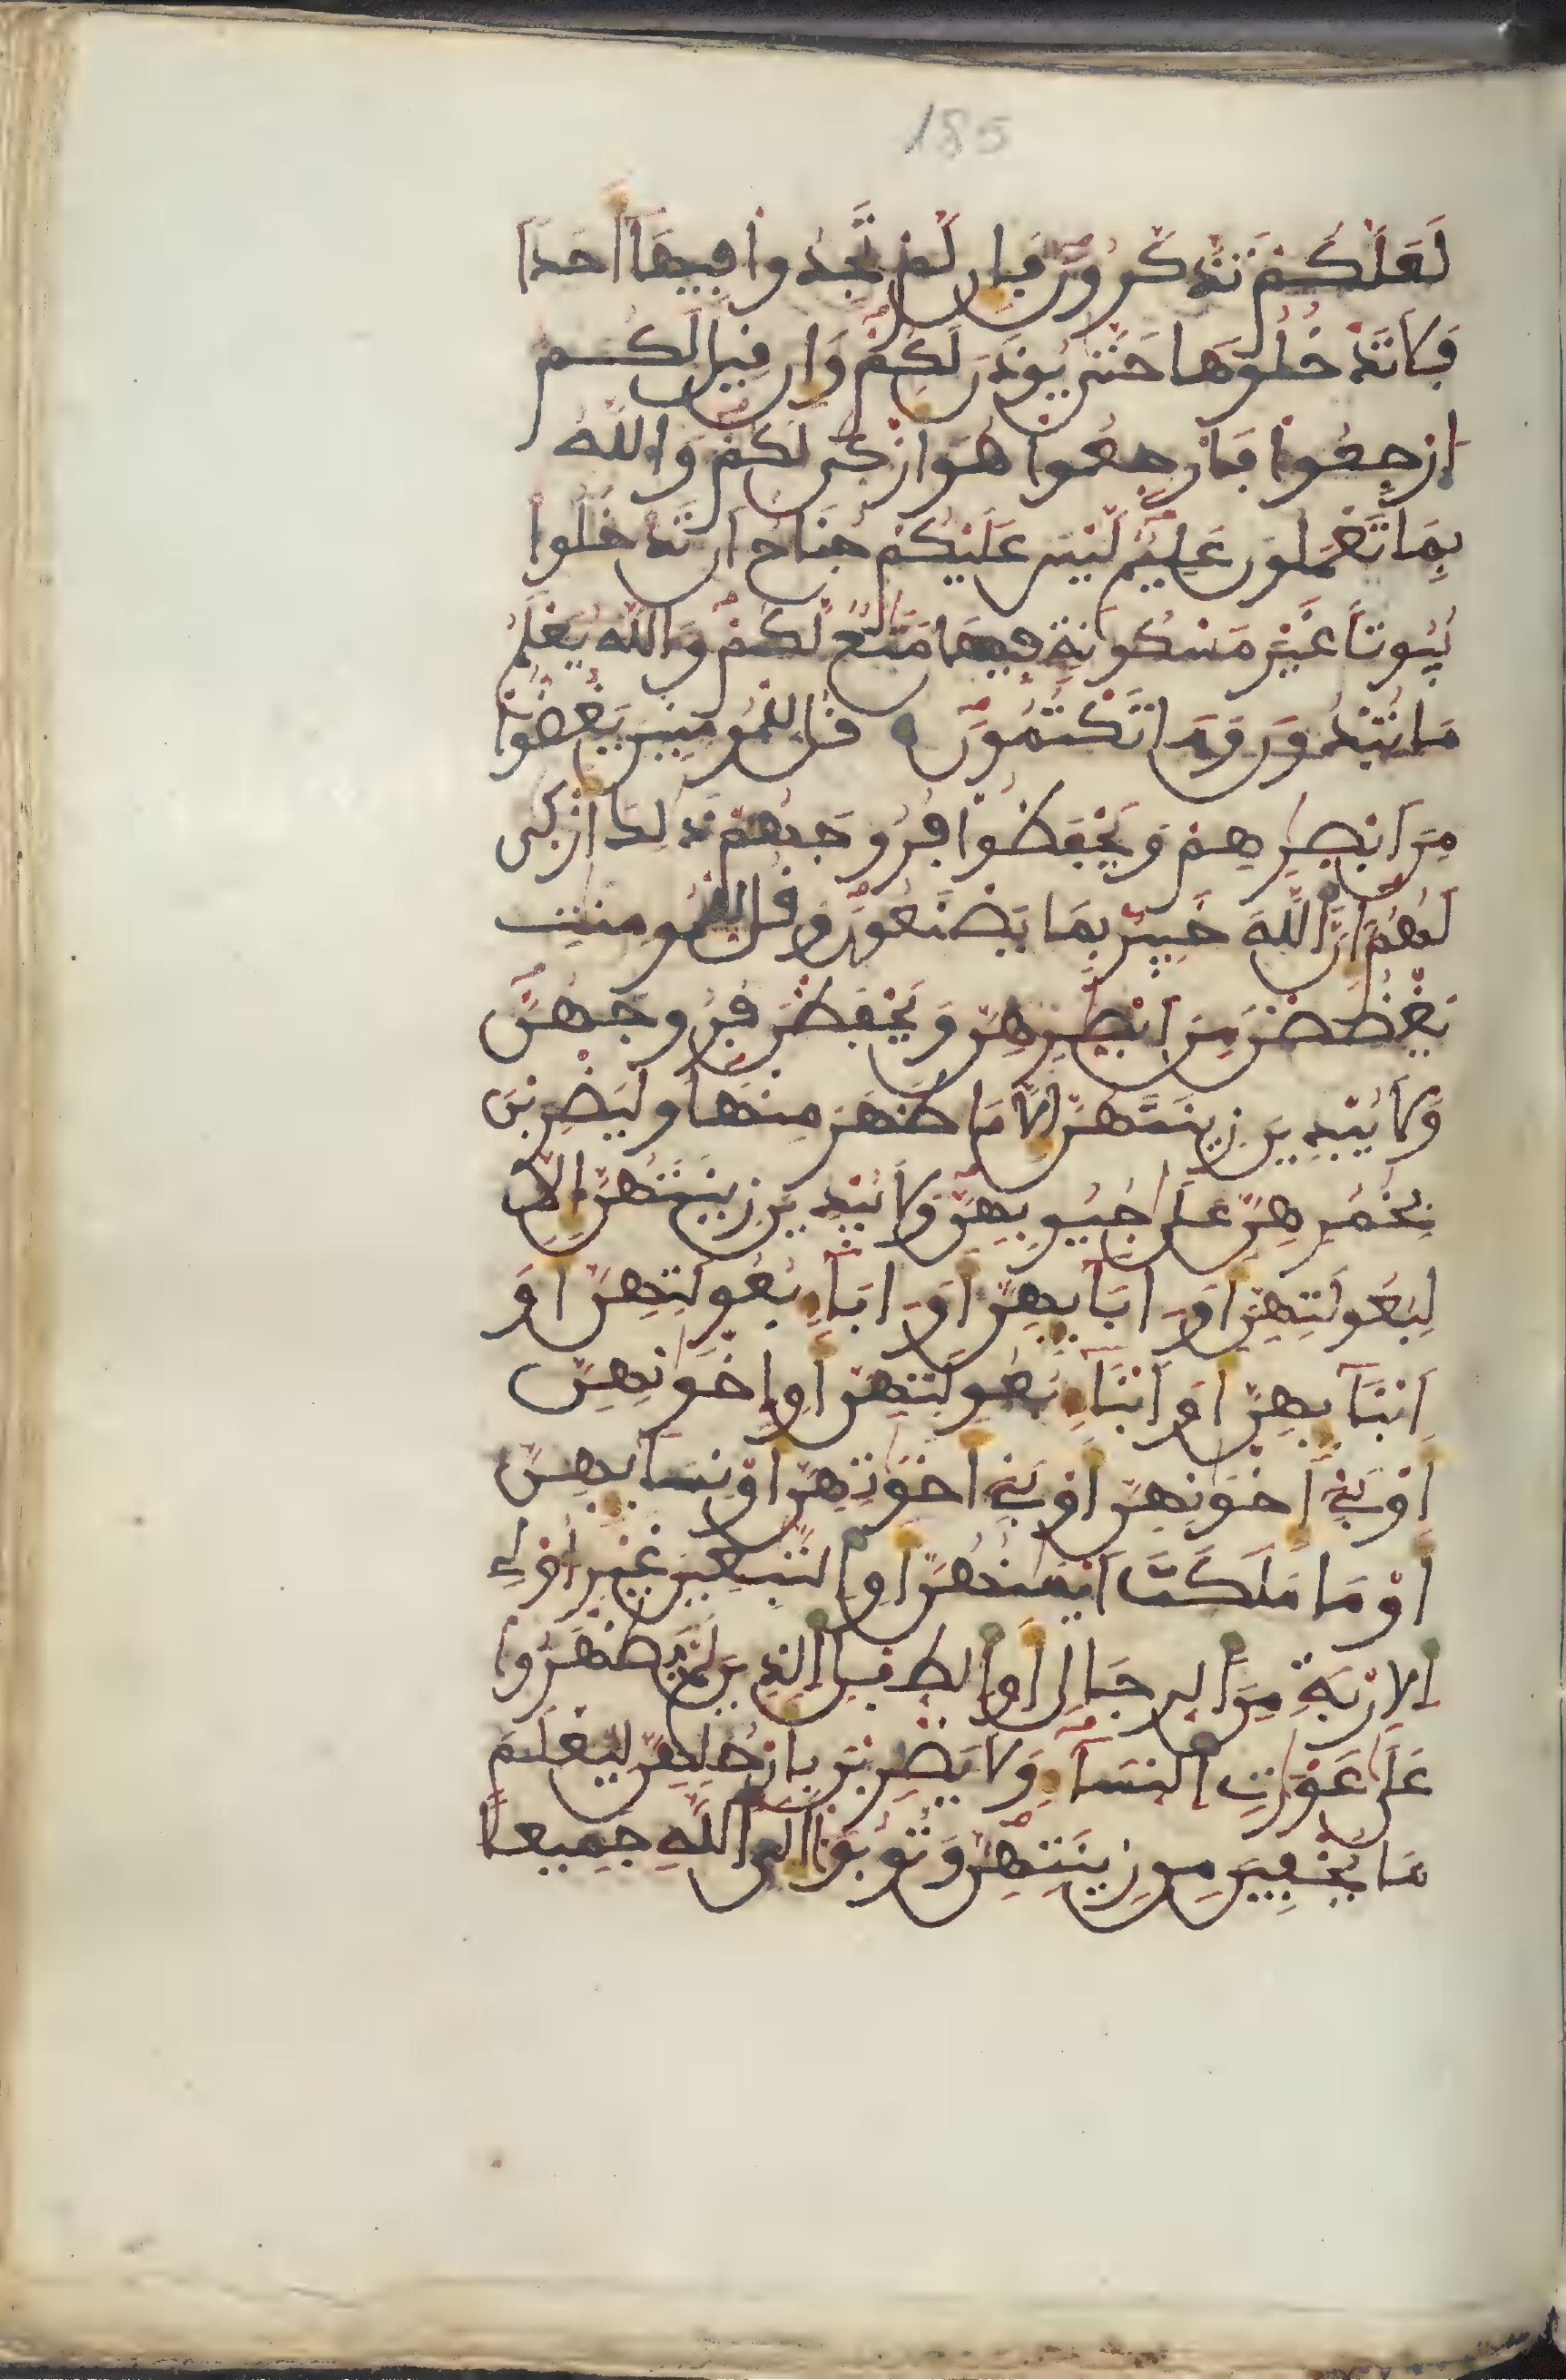 185
لَعَلَّكُمْ تَذَّكَّرُونَ فَإِن لَّمْ تَجِدُوا فِيهَا أَحَدًا
فَلَا تَدْخُلُوهَا حَتَّى يُوذَنَ لَكُمْ وَإِن قِيلَ لَكُمُ
ارْجِعُوا فَارْجِعُوا هُوَ أَزْكَى لَكُمْ وَاللَّهُ
بِمَا تَعْمَلُونَ عَلِيمٌ لَّيْسَ عَلَيْكُمْ جُنَاحٌ أَن تَدْخُلُوا
بُيُوتًا غَيْرَ مَسْكُونَةٍ فِيهَا مَتَٰعٌ لَّكُمْ وَاللَّهُ يَعْلَمُ
مَا تُبْدُونَ وَمَا تَكْتُمُونَ قُل لِّلْمُومِنِينَ يَغُضُّوا
مِنَ ابْصَٰرِهِمْ وَيَحْفَظُوا فُرُوجَهُمْ ذَٰلِكَ أَزْكَى
لَهُمُ إِنَّ اللَّهَ خَبِيرٌ بِمَا يَصْنَعُونَ وَقُل لِّلْمُومِنَٰتِ
يَغْضُضْنَ مِنَ ابْصَٰرِهِنَّ وَيَحْفَظْنَ فُرُوجَهُنَّ
وَلَا يُبْدِينَ زِينَتَهُنَّ إِلَّا مَا ظَهَرَ مِنْهَا وَلْيَضْرِبْنَ
بِخُمُرِهِنَّ عَلَىٰ جُيُوبِهِنَّ وَلَا يُبْدِينَ زِينَتَهُنَّ إِلَّا
لِبُعُولَتِهِنَّ أَوَ ابَآئِهِنَّ أَوَ ابَآءِ بُعُولَتِهِنَّ أَوَ
ابْنَآئِهِنَّ أَوَ ابْنَآءِ بُعُولَتِهِنَّ أَوِ اخْوَٰنِهِنَّ
أَوْ بَنِي إِخْوَٰنِهِنَّ أَوْ بَنِي أَخَوَٰتِهِنَّ أَوْ نِسَآئِهِنَّ
أَوْ مَا مَلَكَتَ ايْمَٰنُهُنَّ أَوِ التَّٰبِعِينَ غَيْرِ أُوْلِي
الِارْبَةِ مِنَ الرِّجَالِ أَوِ الطِّفْلِ الذِينَ لَمْ يَظْهَرُوا
عَلَىٰ عَوْرَٰتِ النِّسَآءِ وَلَا يَضْرِبْنَ بِأَرْجُلِهِنَّ لِيُعْلَمَ
مَا يُخْفِينَ مِن زِينَتِهِنَّ وَتُوبُوا إِلَى اللَّهِ جَمِيعًا